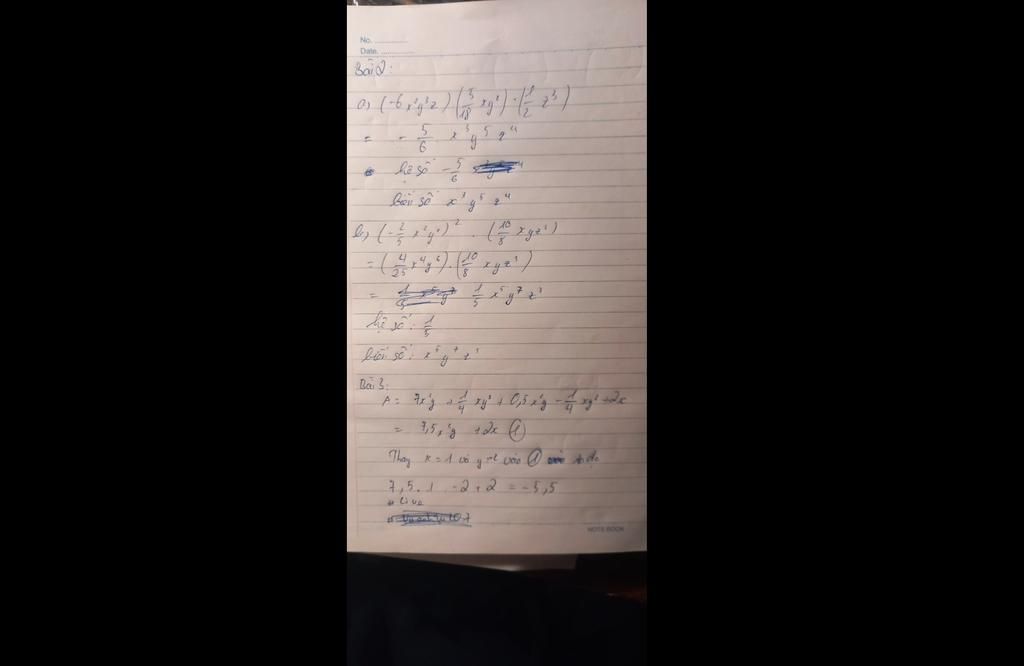 No. ............
Date. ..............
Bài 2:
a) (-6x²y³z)(5/18 xy²)·(1/2 z³)
= -5/6 x³y⁵z⁴
hệ số -5/6
Biến số x³y⁵z⁴
b) (-2/5 x²y³)² · (10/8 xyz³)
= (4/25 x⁴y⁶)·(10/8 xyz³)
= 1/5 x⁵y⁷z³
hệ số: 1/5
biến số: x⁵y⁷z³
Bài 3:
A = 7x²y + 1/4 xy² + 0,5x²y - 1/4 xy² + 2x
= 7,5x²y + 2x ①
Thay x = 1 và y = -2 vào ①
7,5.1 .-2 + 2 =
NOTE BOOK